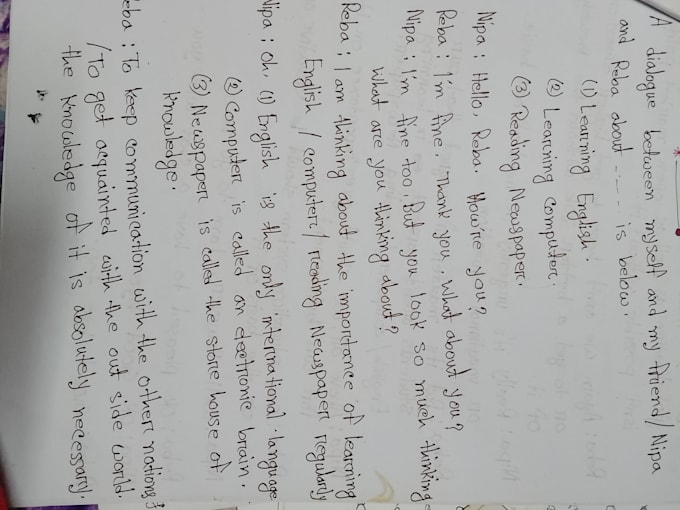 A dialogue between myself and my friend/Nipa
and Reba about ----- is below.
(1) Learning English.
(2) Learning Computer.
(3) Reading Newspaper.
Nipa : Hello, Reba. How're you?
Reba : I'm fine. Thank you. What about you?
Nipa : I'm fine too. But you look so much thinking
what are you thinking about?
Reba : I am thinking about the importance of learning
English / computer / reading Newspaper regularly
Nipa : Oh, (1) English is the only international language
(2) Computer is called an electronic brain.
(3) Newspaper is called the store house of
knowledge.
eba : To keep communication with the other nations
/ To get acquainted with the out side world.
the knowledge of it is absolutely necessary.